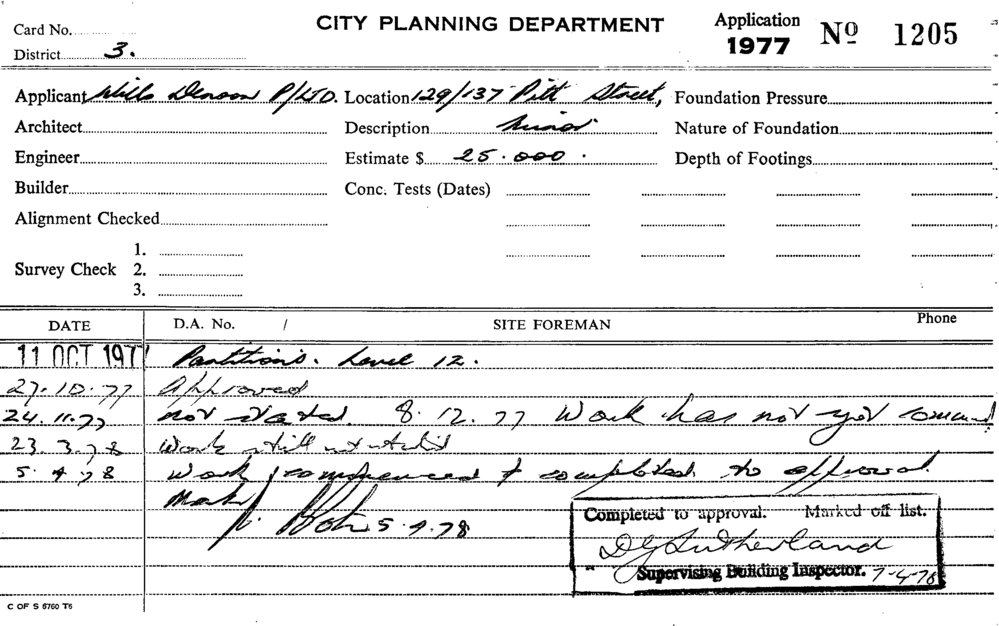 CITY PLANNING DEPARTMENT
Card No.
District 3.
Application 1977 Nº 1205
Applicant Wills Denoon P/LTD. Location 129/137 Pitt Street, Foundation Pressure
Architect Description Minor Nature of Foundation
Engineer Estimate $ 25.000. Depth of Footings
Builder Conc. Tests (Dates)
Alignment Checked
1.
Survey Check 2.
3.
DATE D.A. No. / SITE FOREMAN Phone
11 OCT 197 Partitions. Level 12.
27.10.77 Approved
24.11.77 not started. 8.12.77 Work has not yet
23.3.78 Work still not started
5.4.78 Work commenced & completed to approval.
5.4.78
Completed to approval. Marked off list.
DG Sutherland
Supervising Building Inspector. 7-4-78
C OF S 6760 T6